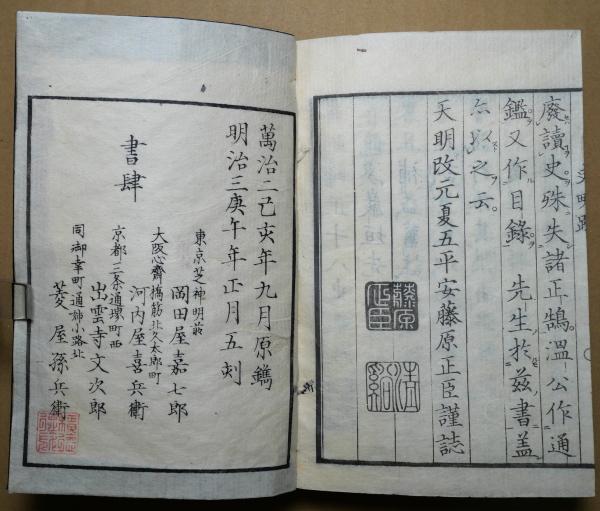 廢讀史殊失諸正鵠溫公作通
鑑又作目錄先生於茲書蓋
之云
天明改元夏五平安藤原正臣謹誌
藤原
正臣
萬治二己亥年九月原鐫
明治三庚午年正月五刻
書肆
東京芝神明前
岡田屋嘉七郎
大阪心齋橋筋北久太郎町
河内屋喜兵衛
京都三条通堺町西
出雲寺文次郎
同御幸町通姉小路北
菱屋孫兵衛